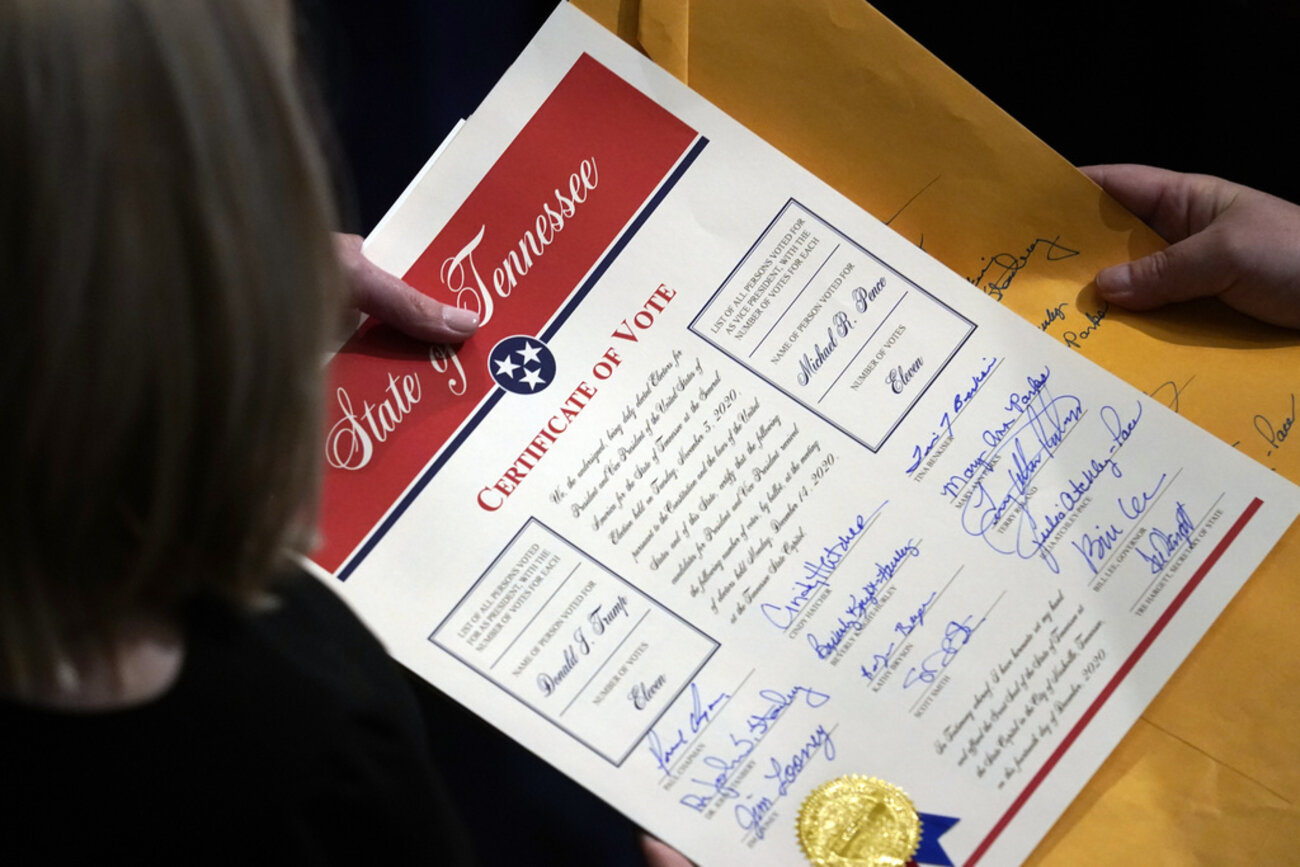 State of Tennessee
CERTIFICATE OF VOTE
We, the undersigned, being duly elected Electors for
President and Vice-President of the United States of
America for the State of Tennessee at the General
Election held on Tuesday, November 3, 2020,
pursuant to the Constitution and the laws of the United
States and of this State, certify that the following
candidates for President and Vice President received
the following number of votes, by ballot, at the meeting
of electors held Monday, December 14, 2020,
at the Tennessee State Capitol.
LIST OF ALL PERSONS VOTED
FOR AS PRESIDENT, WITH THE
NUMBER OF VOTES FOR EACH
NAME OF PERSON VOTED FOR
Donald J. Trump
NUMBER OF VOTES
Eleven
LIST OF ALL PERSONS VOTED FOR
AS VICE PRESIDENT, WITH THE
NUMBER OF VOTES FOR EACH
NAME OF PERSON VOTED FOR
Michael R. Pence
NUMBER OF VOTES
Eleven
Paul Chapman
PAUL CHAPMAN
Dr. John S. Stanbery
DR. JOHN STANBERY
Jim Looney
Cindy Hatcher
CINDY HATCHER
Beverly Knight-Hurley
BEVERLY KNIGHT-HURLEY
Kathy Bryson
KATHY BRYSON
SCOTT SMITH
Tina J Benkiser
TINA BENKISER
Mary Ann Parks
MARY ANN PARKS
TERRY ROLAND
Julia Atchley-Pace
JULIA ATCHLEY-PACE
Bill Lee
BILL LEE, GOVERNOR
Tre Hargett
TRE HARGETT, SECRETARY OF STATE
In Testimony whereof, I have hereunto set my hand
and affixed the Great Seal of the State of Tennessee at
the State Capitol in the City of Nashville, Tennessee,
on this fourteenth day of December, 2020
Parks
-Pace